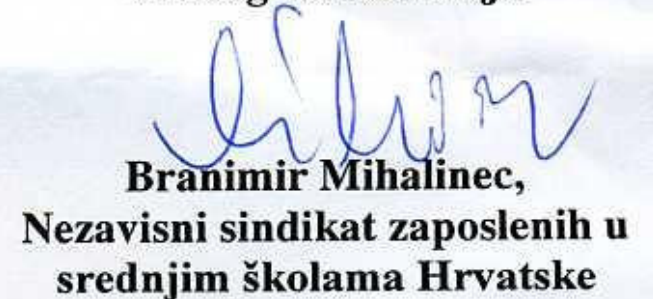 Branimir Mihalinec,
Nezavisni sindikat zaposlenih u
srednjim školama Hrvatske